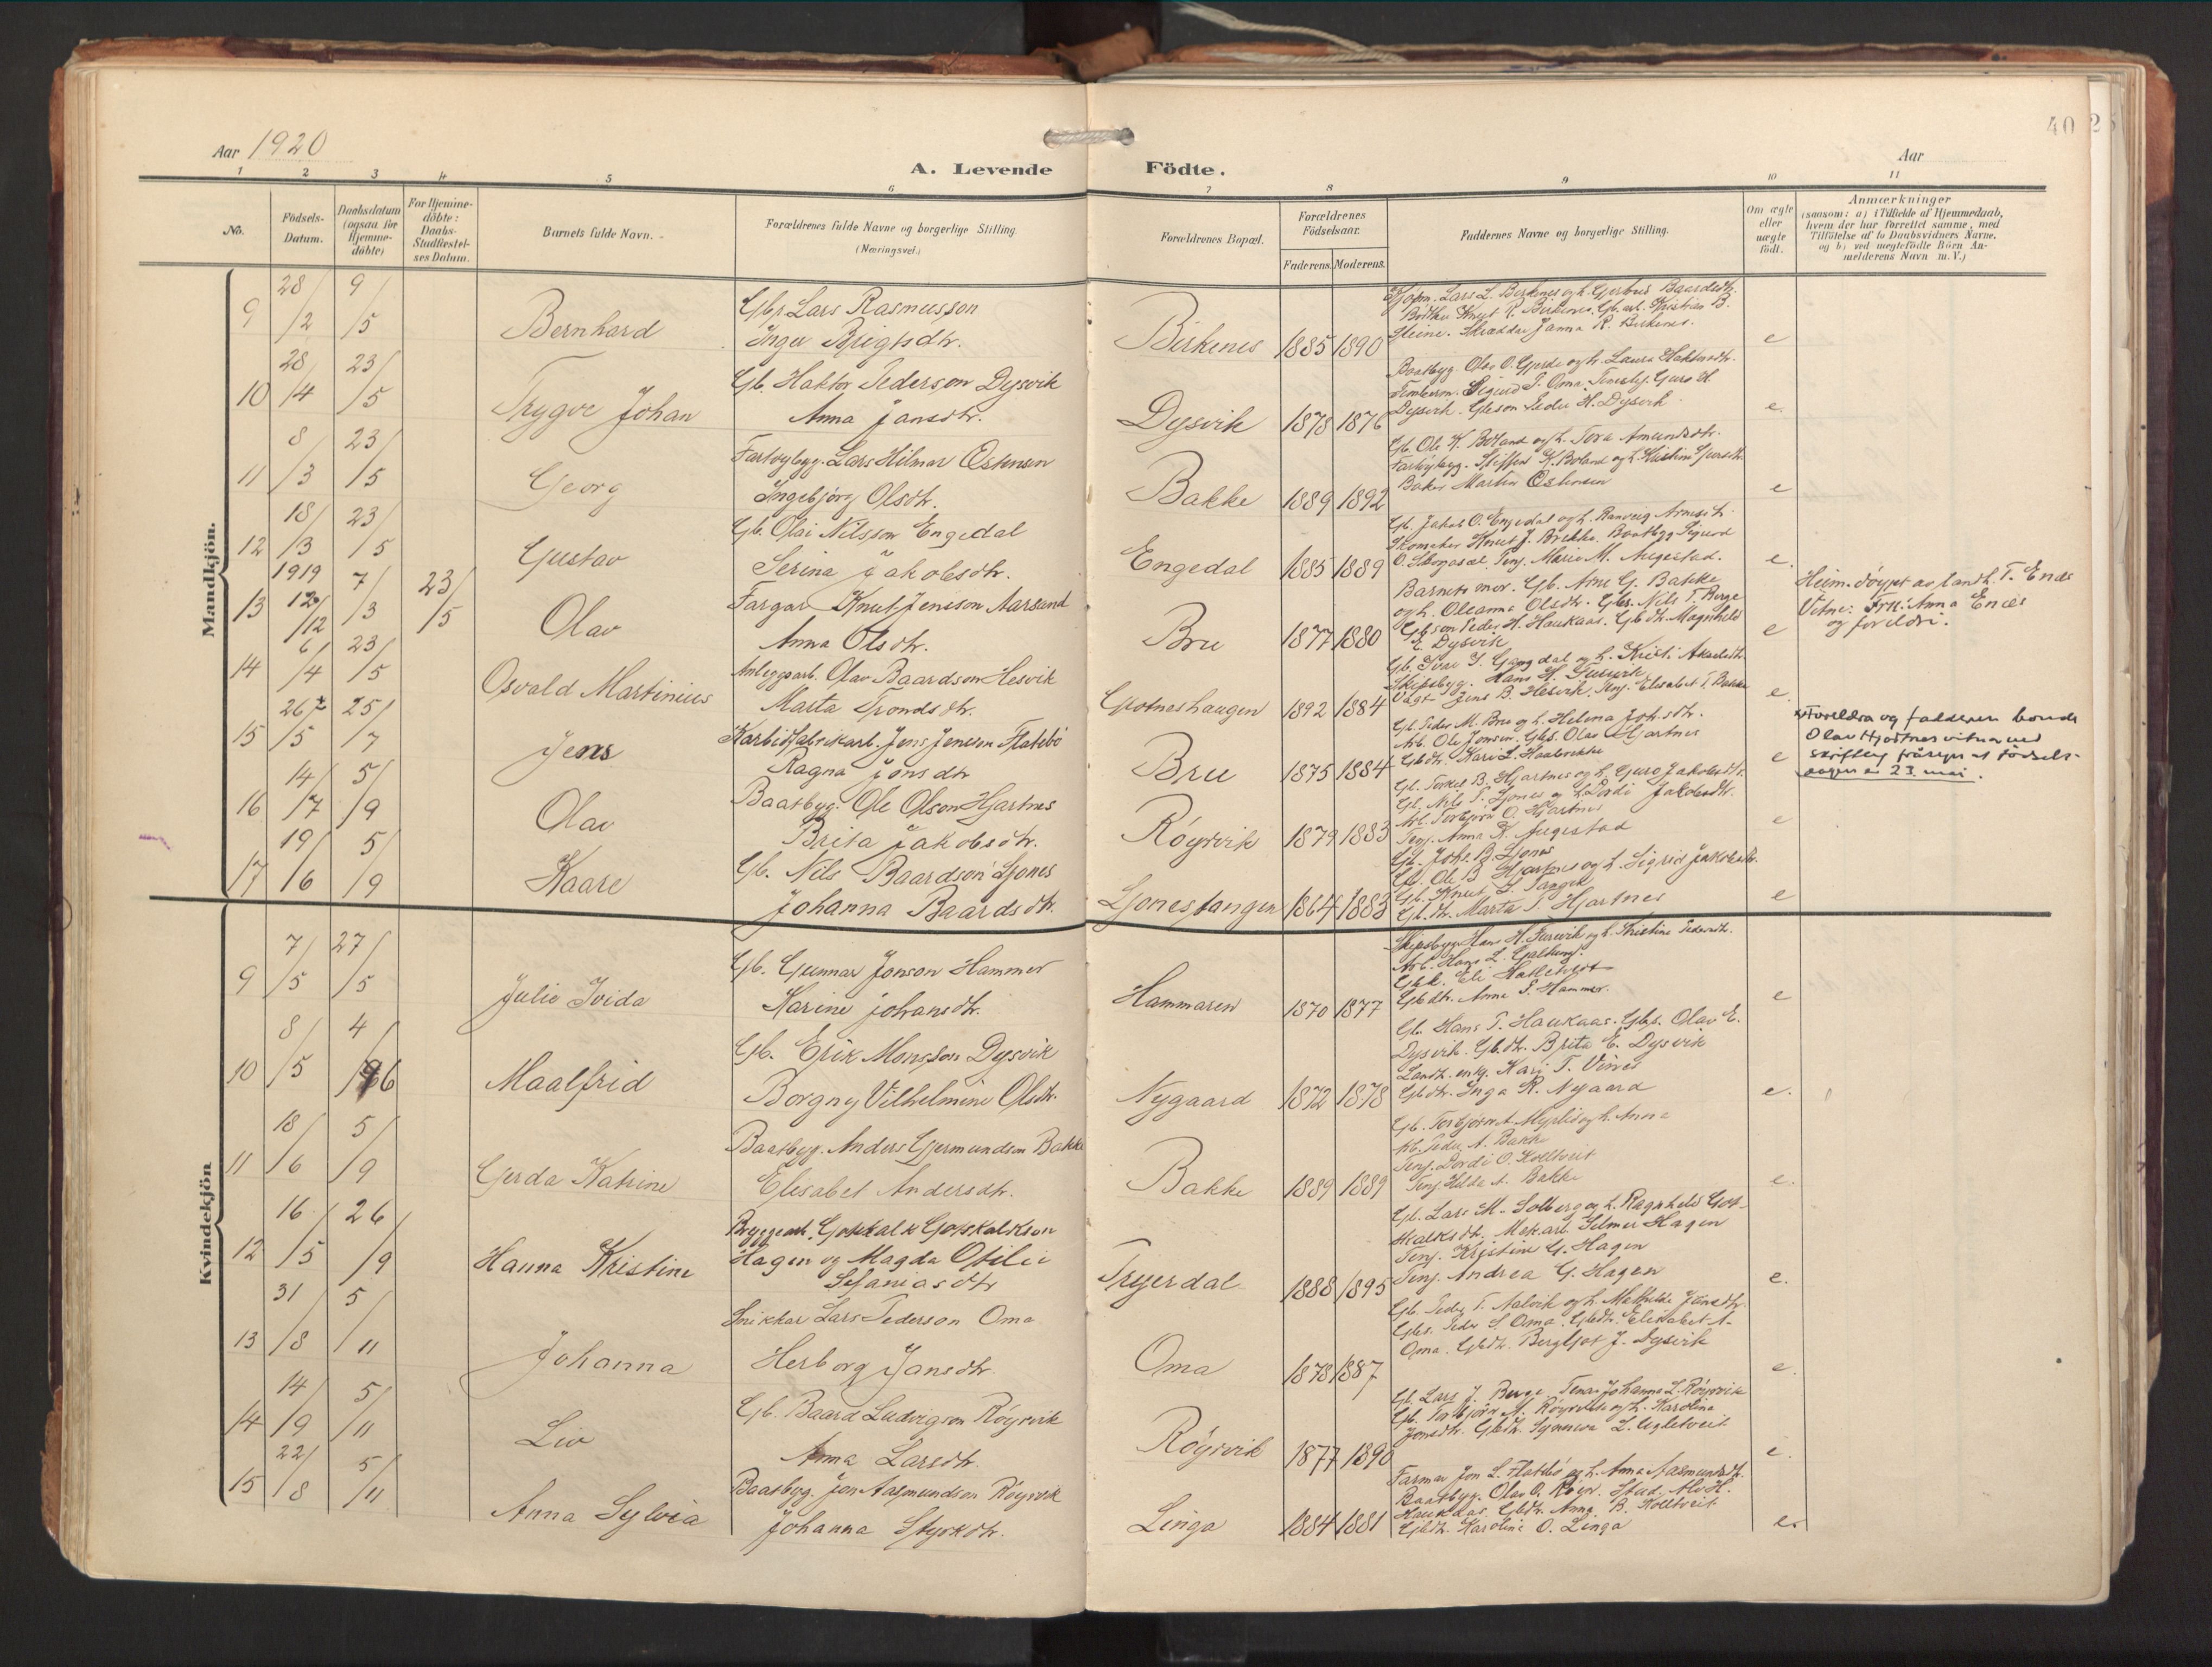 40
Aar 1920
A. Levende Födte.
Aar
1 2 3 4 5 6 7 8 9 10 11
No.
Födsels-
Datum.
Daabsdatum
(ogsaa for
Hjemme-
döbte)
For Hjemme-
döbte:
Daabs-
Stadfæstel-
ses Datum.
Barnets fulde Navn.
Forældrenes fulde Navne og borgerlige Stilling.
(Næringsvei.)
Forældrenes Bopæl.
Forældrenes
Födselsaar.
Faderens. Moderens.
Faddernes Navne og borgerlige Stilling.
Om ægte
eller
uægte
födt.
Anmærkninger
(saasom: a) i Tilfælde af Hjemmedaab,
hvem der har forrettet samme, med
Tilföielse af to Daabsvidners Navne,
og b) ved uægtefödte Börn An-
melderens Navn m. V.)
Mandkjön.
9 28/2 9/5 Bernhard
Gbr Lars Rasmusson
Inger Brigtsdtr.
Birkenes 1885 1890
Lars L. Birkenes og h. Gjertrud Baardsdtr.
Knut R. Birkenes. Gb. arb. Kristian B.
Heine. Janna R. Birkenes.
e
10 28/4 23/5 Trygve Johan
Gb. Haktor Pederson Dysvik
Anna Jansdtr.
Dysvik 1878 1876
Baatbyg. Olav O. Gjerde og h. Laura Haktorsdtr.
Tømberm. Sigurd P. Oma. Guro H.
Dysvik. Gbson Peder H. Dysvik
e.
11 8/3 23/5 Georg
Fartøybyg. Lars Hilmar Østensen
Ingebjörg Olsdtr.
Bakke 1889 1892
Gb. Ole K. Boland og h. Tora Amundsdtr.
Fartöybyg. Steffen K. Boland og h.
Baker Martin Østensen
e
12 18/3 23/5 Gustav
Gb. Olai Nilsson Engedal
Serina Jakobsdtr.
Engedal 1885 1889
Gb. Jakob O. Engedal og h. Ranveig
Skomaker Knut J. Brekke. Baatbyg Sigurd
O. Skogasel. Tenj. Maria M. Augestad.
e.
13 1919 12/12 7/3 23/5 Olav
Fargar Knut Jenson Aarsand
Anna Olsdtr.
Bru 1877 1880
Barnets mor. Gb. Arne G. Bakke
og h. Oleanna Olsdtr. Gbs. Nils T. Berge
Gbson Peder H. Haukaas. Gbdtr. Magnhild
E. Dysvik
e
Heim. døypt av landh. T. Enes
Vitne: Frk. Anna Enes
og foreldri.
14 6/4 23/5 Osvald Martinius
Anleggsarb. Olav Baardson Hesvik
Marta Trondsdtr.
Grotneshaugen 1892 1884
Gb. Ivar I. Gangdal og h. Kristi
Skipsbyg. Hans H. Furevik
Jens B. Hesvik. Tenj. Elisabet T. Bakke
e.
15 26/5 25/7 Jens
Karbidfabrikarb. Jens Jenson Flatebö
Ragna Jonsdtr
Bru 1875 1884
Gb. Peder M. Bru og h. Helena Johsdtr.
Arb. Ole Jonson. Gbs. Olav Hjartnes
Gbdtr. Kari L. Haabrekke
e
Foreldra og fadderen bonde
Olav Hjartnes vitna ved
skriftleg fråsegn at födsels-
dagen er 23. mai.
16 14/7 5/9 Olav
Baatbyg. Ole Olson Hjartnes
Brita Jakobsdtr.
Röyrvik 1879 1883
Gb. Torkel B. Hjartnes og h. Guro Jakobsdtr.
Gb. Nils T. Ljones og h. Dordi Jakobsdtr.
Arb. Torbjørn O. Hjartnes
Tenj. Anna K. Augestad
e
17 19/6 5/9 Kaare
Gb. Nils Baardson Ljones
Johanna Baardsdtr.
Ljonestangen 1864 1883
Gb. Johs. B. Ljones
Gb. Ole B. Hjartnes og h. Sigrid Jakobsdtr.
Gb. Knut L. Tangen
Gb. dtr. Marta T. Hjartnes
e
Kvindekjön
9 7/5 27/5 Julie Ovida
Gb. Gunnar Jonson Hammer
Karine Johansdtr.
Hammaren 1870 1877
Skipsbyg. Hans H. Furevik og h. Kristine Pedersdtr.
Arb. Hans L. Galtung.
Gbk. Eli
Gbdtr. Anna S. Hammer.
e
10 8/5 4/6 Maalfrid
Gb. Erik Monsson Dysvik
Borgny Vilhelmine Olsdtr.
Nygaard 1872 1878
Gb. Hans T. Haukaas. Gbs. Olav E.
Dysvik. Gb.dtr. Brita E. Dysvik
Landh. enkj. Kari T. Vines
Gbdtr. Inga R. Nygaard
e.
11 18/6 5/9 Gerda Katrine
Baatbyg. Anders Gjermundson Bakke
Elisabet Andersdtr.
Bakke 1889 1889
Gb. Torbjørn A. Myrlid og h. Anna
Arb. Peder A. Bakke
Tenj. Dordi O. Kolltveit
Tenj. Hilda A. Bakke
e.
12 16/5 26/9 Hanna Kristine
Bryggearb. Gotskalk Gotskalkson
Hagen og Magda Otilie
Sefaniasdtr
Treyerdal 1888 1895
Gb. Lars M. Solberg og h. Ragnhild Got-
skalksdtr. Mek.arb. Selmer Hagen
Tenj. Kristine G. Hagen
Tenj. Andrea G. Hagen
e.
13 31/8 5/11 Johanna
Snikkar Lars Pederson Oma
Herborg Jansdtr.
Oma 1878 1887
Gb. Peder T. Nalvik og h. Mathilde Jonsdtr.
Gbs. Peder S. Oma. Gbdtr. Elisabet A.
Oma. Gbdtr. Bergljot J. Dysvik
e.
14 14/9 5/11 Liv
Gb. Baard Ludvigson Röyrvik
Anna Larsdtr.
Röyrvik 1877 1890
Gb. Lars J. Berge. Johanne L. Röyrvik
Gb. Torbjörn A. Röyrvik og h. Karolina
Jonsdtr. Gbdtr. Synneva L. Ugletveit
e.
15 22/8 5/11 Anna Sylvia
Baatbyg. Jon Aasmundson Röyrvik
Johanna Styrkdtr.
Linga 1884 1881
Farmar Jon L. Flatebö og h. Anna Aasmundsdtr.
Baatbyg. Olav O. Röyrv. Stud. Alv H.
Haukaas. Gbdtr. Anna B. Kolltveit
Gbdtr. Karoline O. Linga
e.